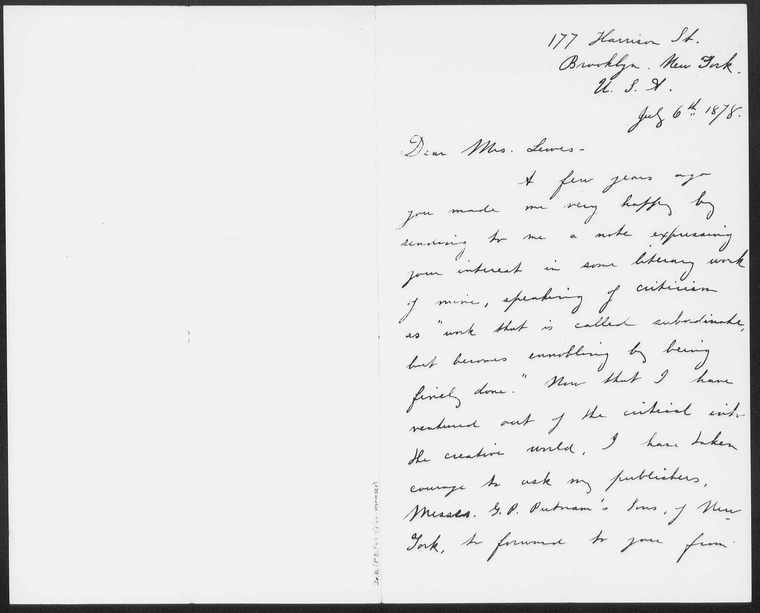 177 Harrison St.
Brooklyn. New York.
U. S. A.
July 6th 1878.
Dear Mrs. Lewes -
A few years ago
you made me very happy by
sending to me a note expressing
your interest in some literary work
of mine, speaking of criticism
as "work that is called subordinate,
but becomes ennobling by being
finely done." Now that I have
ventured out of the critical into
the creative world, I have taken
courage to ask my publishers,
Messrs. G. P. Putnam's Sons, of New
York, to forward to you from